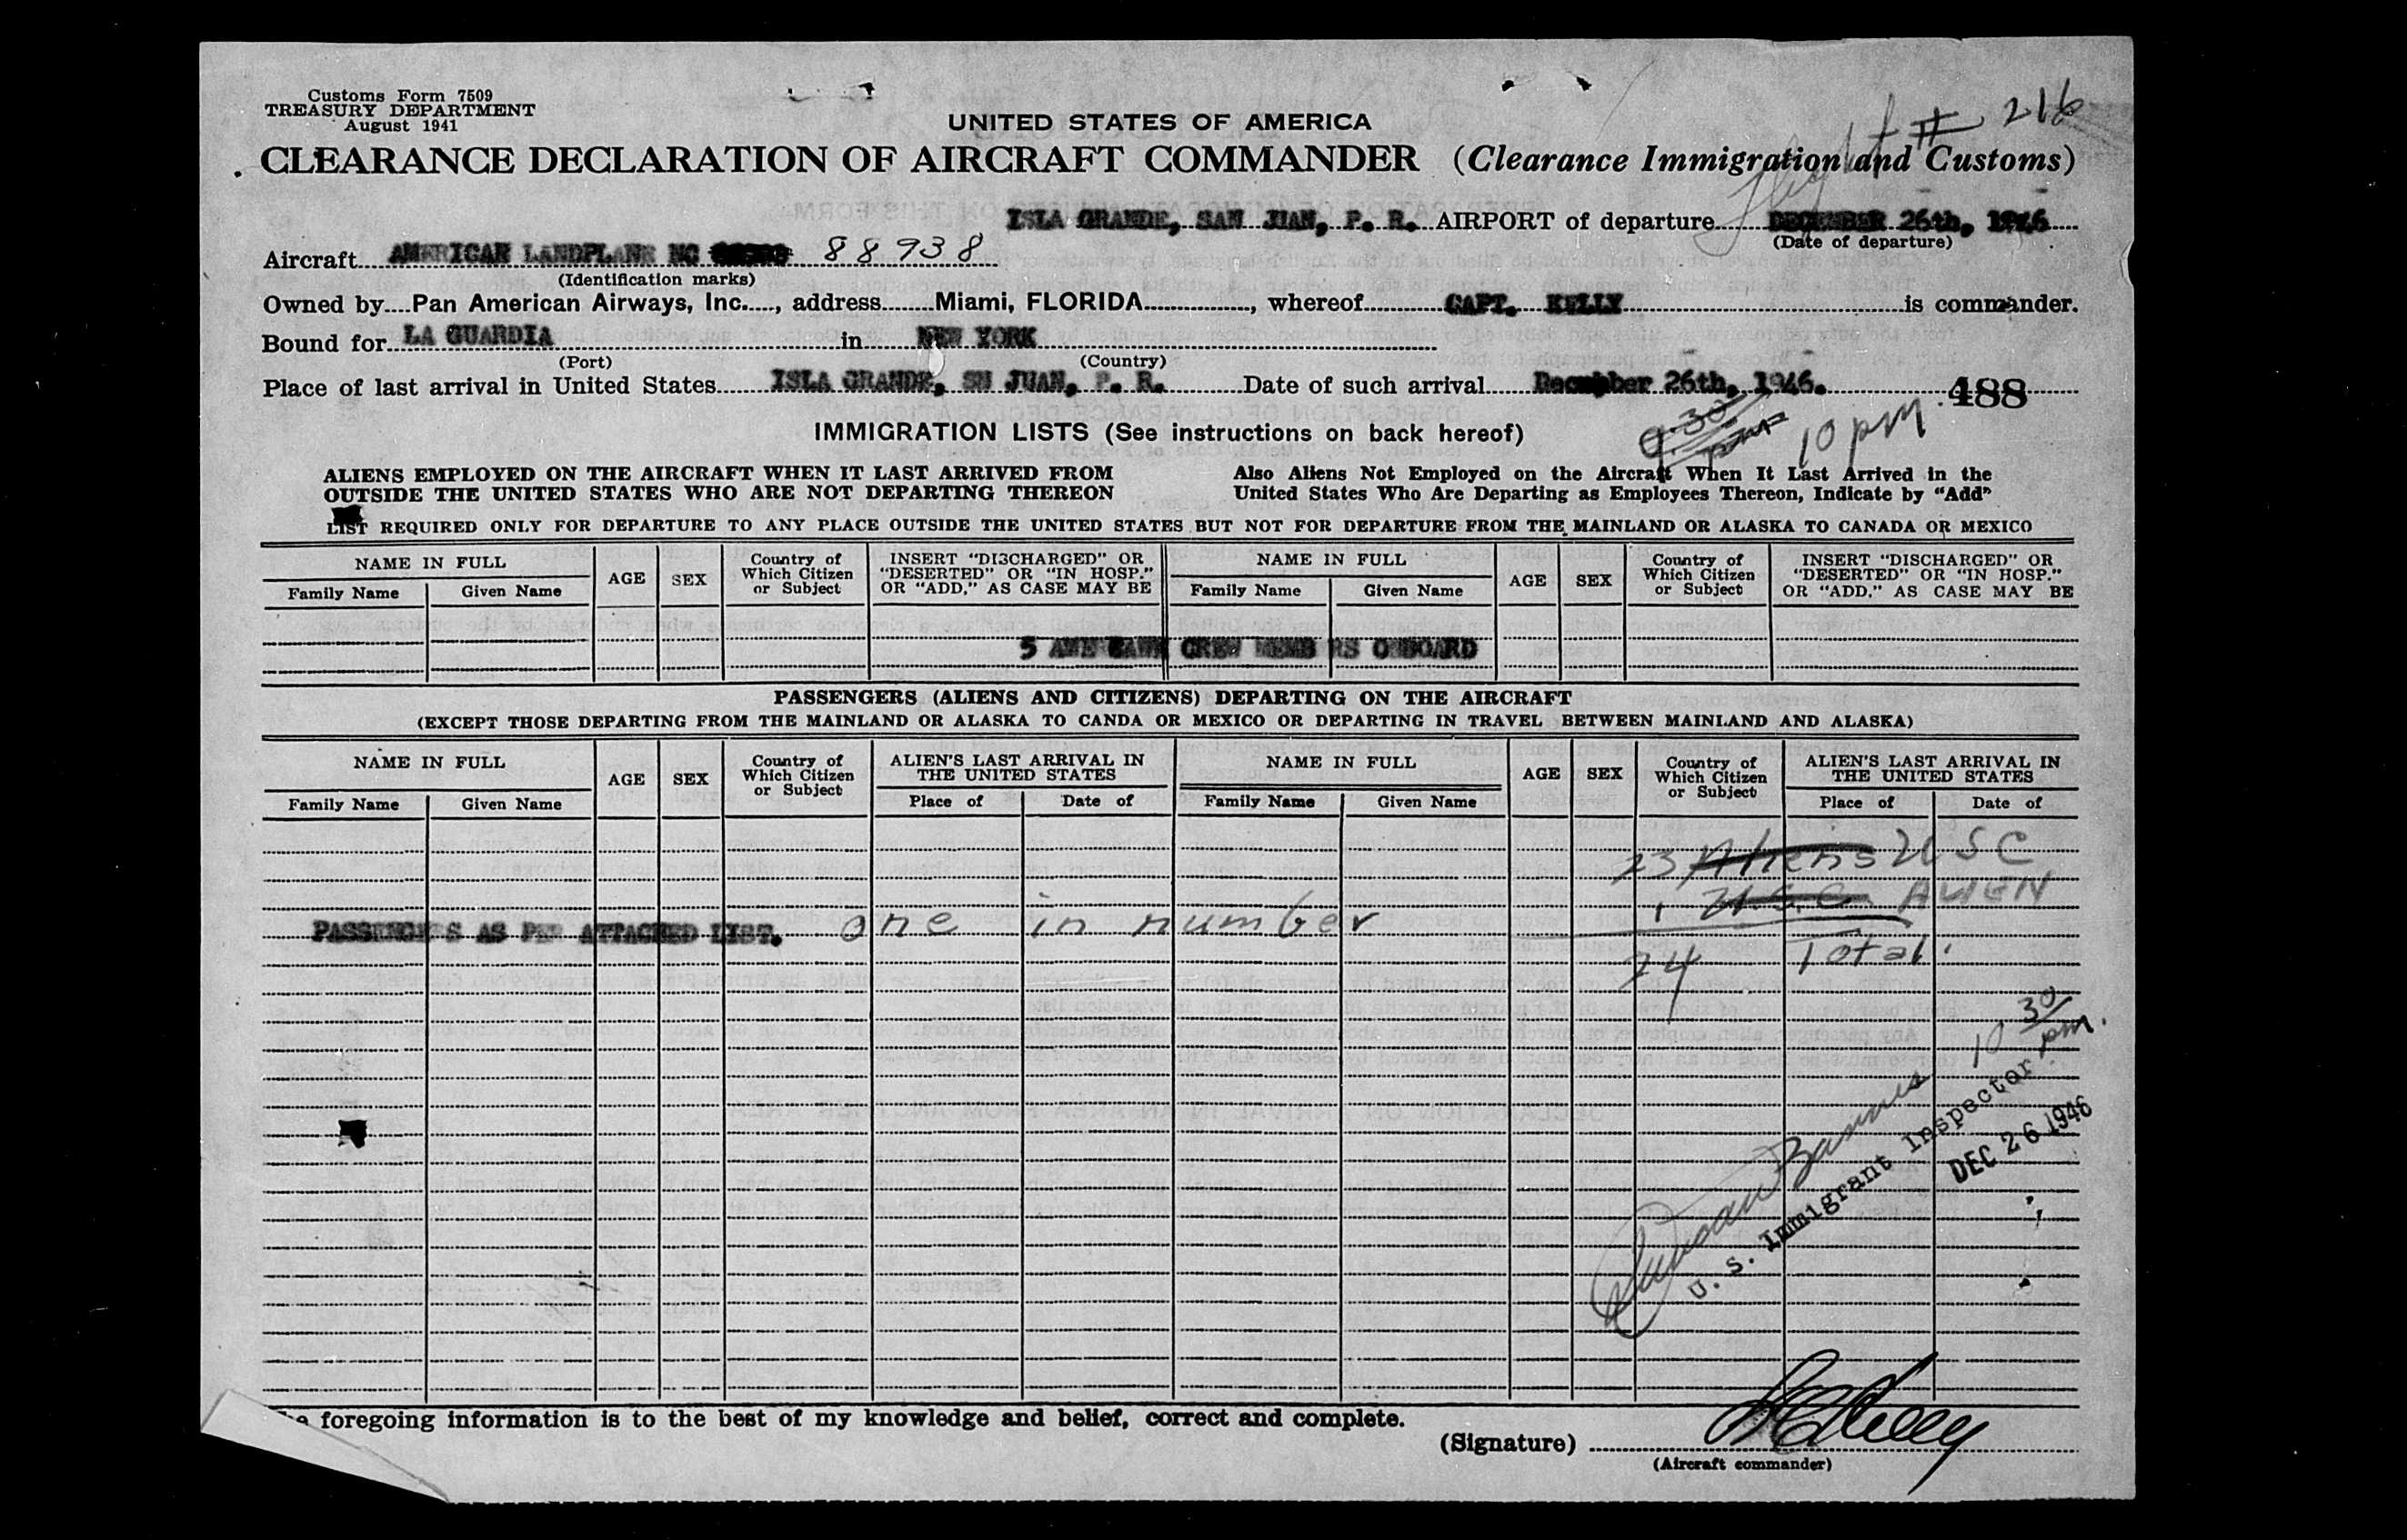 Customs Form 7509
TREASURY DEPARTMENT
August 1941
Flight # 216
UNITED STATES OF AMERICA
CLEARANCE DECLARATION OF AIRCRAFT COMMANDER (Clearance Immigration and Customs)
ISLA GRANDE, SAN JUAN, P. R. AIRPORT of departure DECEMBER 26th, 1946
(Date of departure)
Aircraft AMERICAN LANDPLANE NC 88938
(Identification marks)
Owned by Pan American Airways, Inc., address Miami, FLORIDA, whereof CAPT. KELLY is commander.
Bound for LA GUARDIA in NEW YORK
(Port) (Country)
Place of last arrival in United States ISLA GRANDE, SN JUAN, P. R. Date of such arrival December 26th, 1946. 488
9:30 pm 10 pm
IMMIGRATION LISTS (See instructions on back hereof)
ALIENS EMPLOYED ON THE AIRCRAFT WHEN IT LAST ARRIVED FROM Also Aliens Not Employed on the Aircraft When It Last Arrived in the
OUTSIDE THE UNITED STATES WHO ARE NOT DEPARTING THEREON United States Who Are Departing as Employees Thereon, Indicate by “Add”
LIST REQUIRED ONLY FOR DEPARTURE TO ANY PLACE OUTSIDE THE UNITED STATES BUT NOT FOR DEPARTURE FROM THE MAINLAND OR ALASKA TO CANADA OR MEXICO
NAME IN FULL AGE SEX Country of Which Citizen or Subject INSERT “DISCHARGED” OR “DESERTED” OR “IN HOSP.” OR “ADD,” AS CASE MAY BE NAME IN FULL AGE SEX Country of Which Citizen or Subject INSERT “DISCHARGED” OR “DESERTED” OR “IN HOSP.” OR “ADD,” AS CASE MAY BE
Family Name Given Name Family Name Given Name
5 AMERICAN CREW MEMB RS ONBOARD
PASSENGERS (ALIENS AND CITIZENS) DEPARTING ON THE AIRCRAFT
(EXCEPT THOSE DEPARTING FROM THE MAINLAND OR ALASKA TO CANDA OR MEXICO OR DEPARTING IN TRAVEL BETWEEN MAINLAND AND ALASKA)
NAME IN FULL AGE SEX Country of Which Citizen or Subject ALIEN'S LAST ARRIVAL IN THE UNITED STATES NAME IN FULL AGE SEX Country of Which Citizen or Subject ALIEN'S LAST ARRIVAL IN THE UNITED STATES
Family Name Given Name Place of Date of Family Name Given Name Place of Date of
23 Aliens USC
1 U.S.C. ALIEN
PASSENGERS AS PER ATTACHED LIST. one in number
24 Total.
10 30 pm.
U. S. Immigrant Inspector
DEC 26 1946
foregoing information is to the best of my knowledge and belief, correct and complete.
(Signature)
(Aircraft commander)